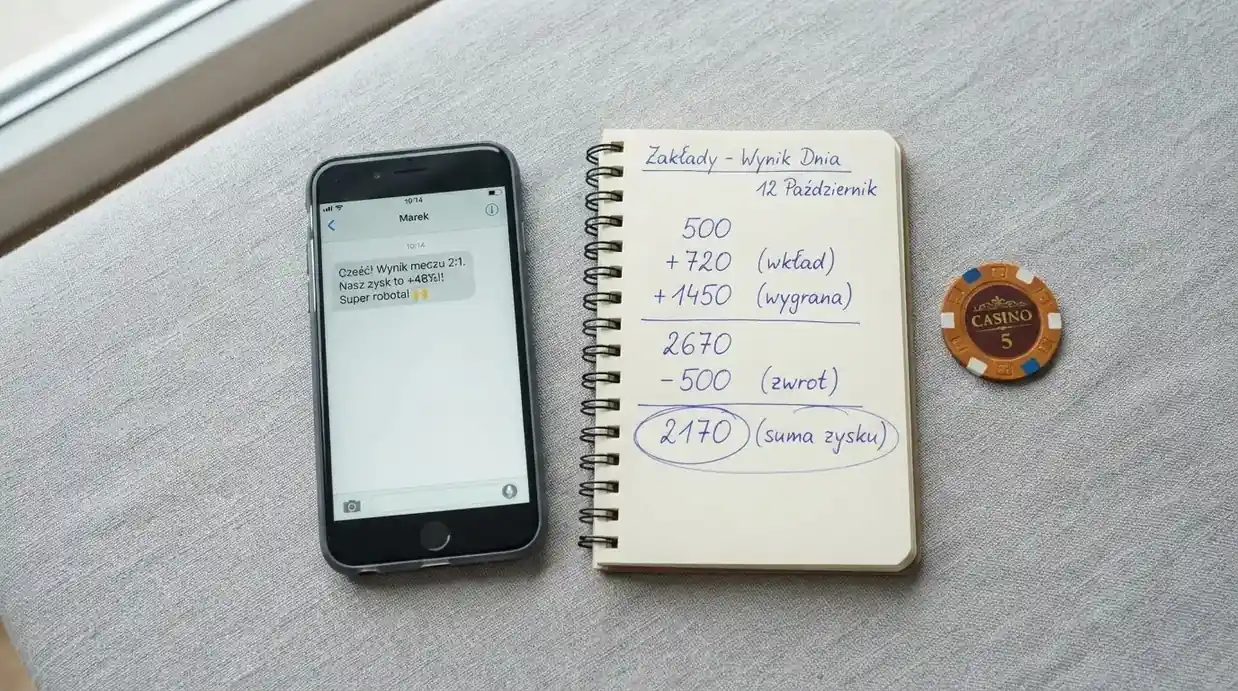 10:14
Marek
10:14
Cześć! Wynik meczu 2:1.
Nasz zysk to +48%!!
Super robota! 🙌
Zakłady - Wynik Dnia
12 Październik
500
+720 (wkład)
+1450 (wygrana)
2670
-500 (zwrot)
2170 (suma zysku)
CASINO
5